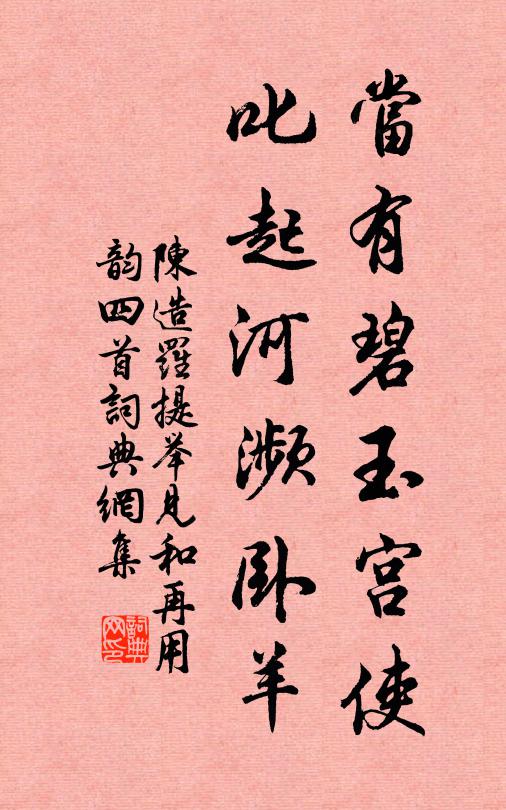 當有碧玉宫使
叱起河瀕卧羊
陳造羅提举見和再用
韵四首詞典網集
詞典
网印